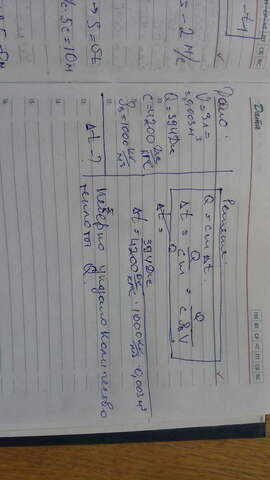 Дата
Дано:
V = 3л =
0,003м³
Q = 394Дж
C = 4200 Дж/кг°С
ρв = 1000 кг/м³
Δt - ?
Решение:
Q = cmΔt.
Δt = Q/cm = Q/cρвV
Δt = Q
Δt = 394Дж / 4200 Дж/кг°С · 1000 кг/м³ · 0,003м³
Неверно указано количество
теплоты Q.
S = υt
5с = 10м
5 - 2 м/с